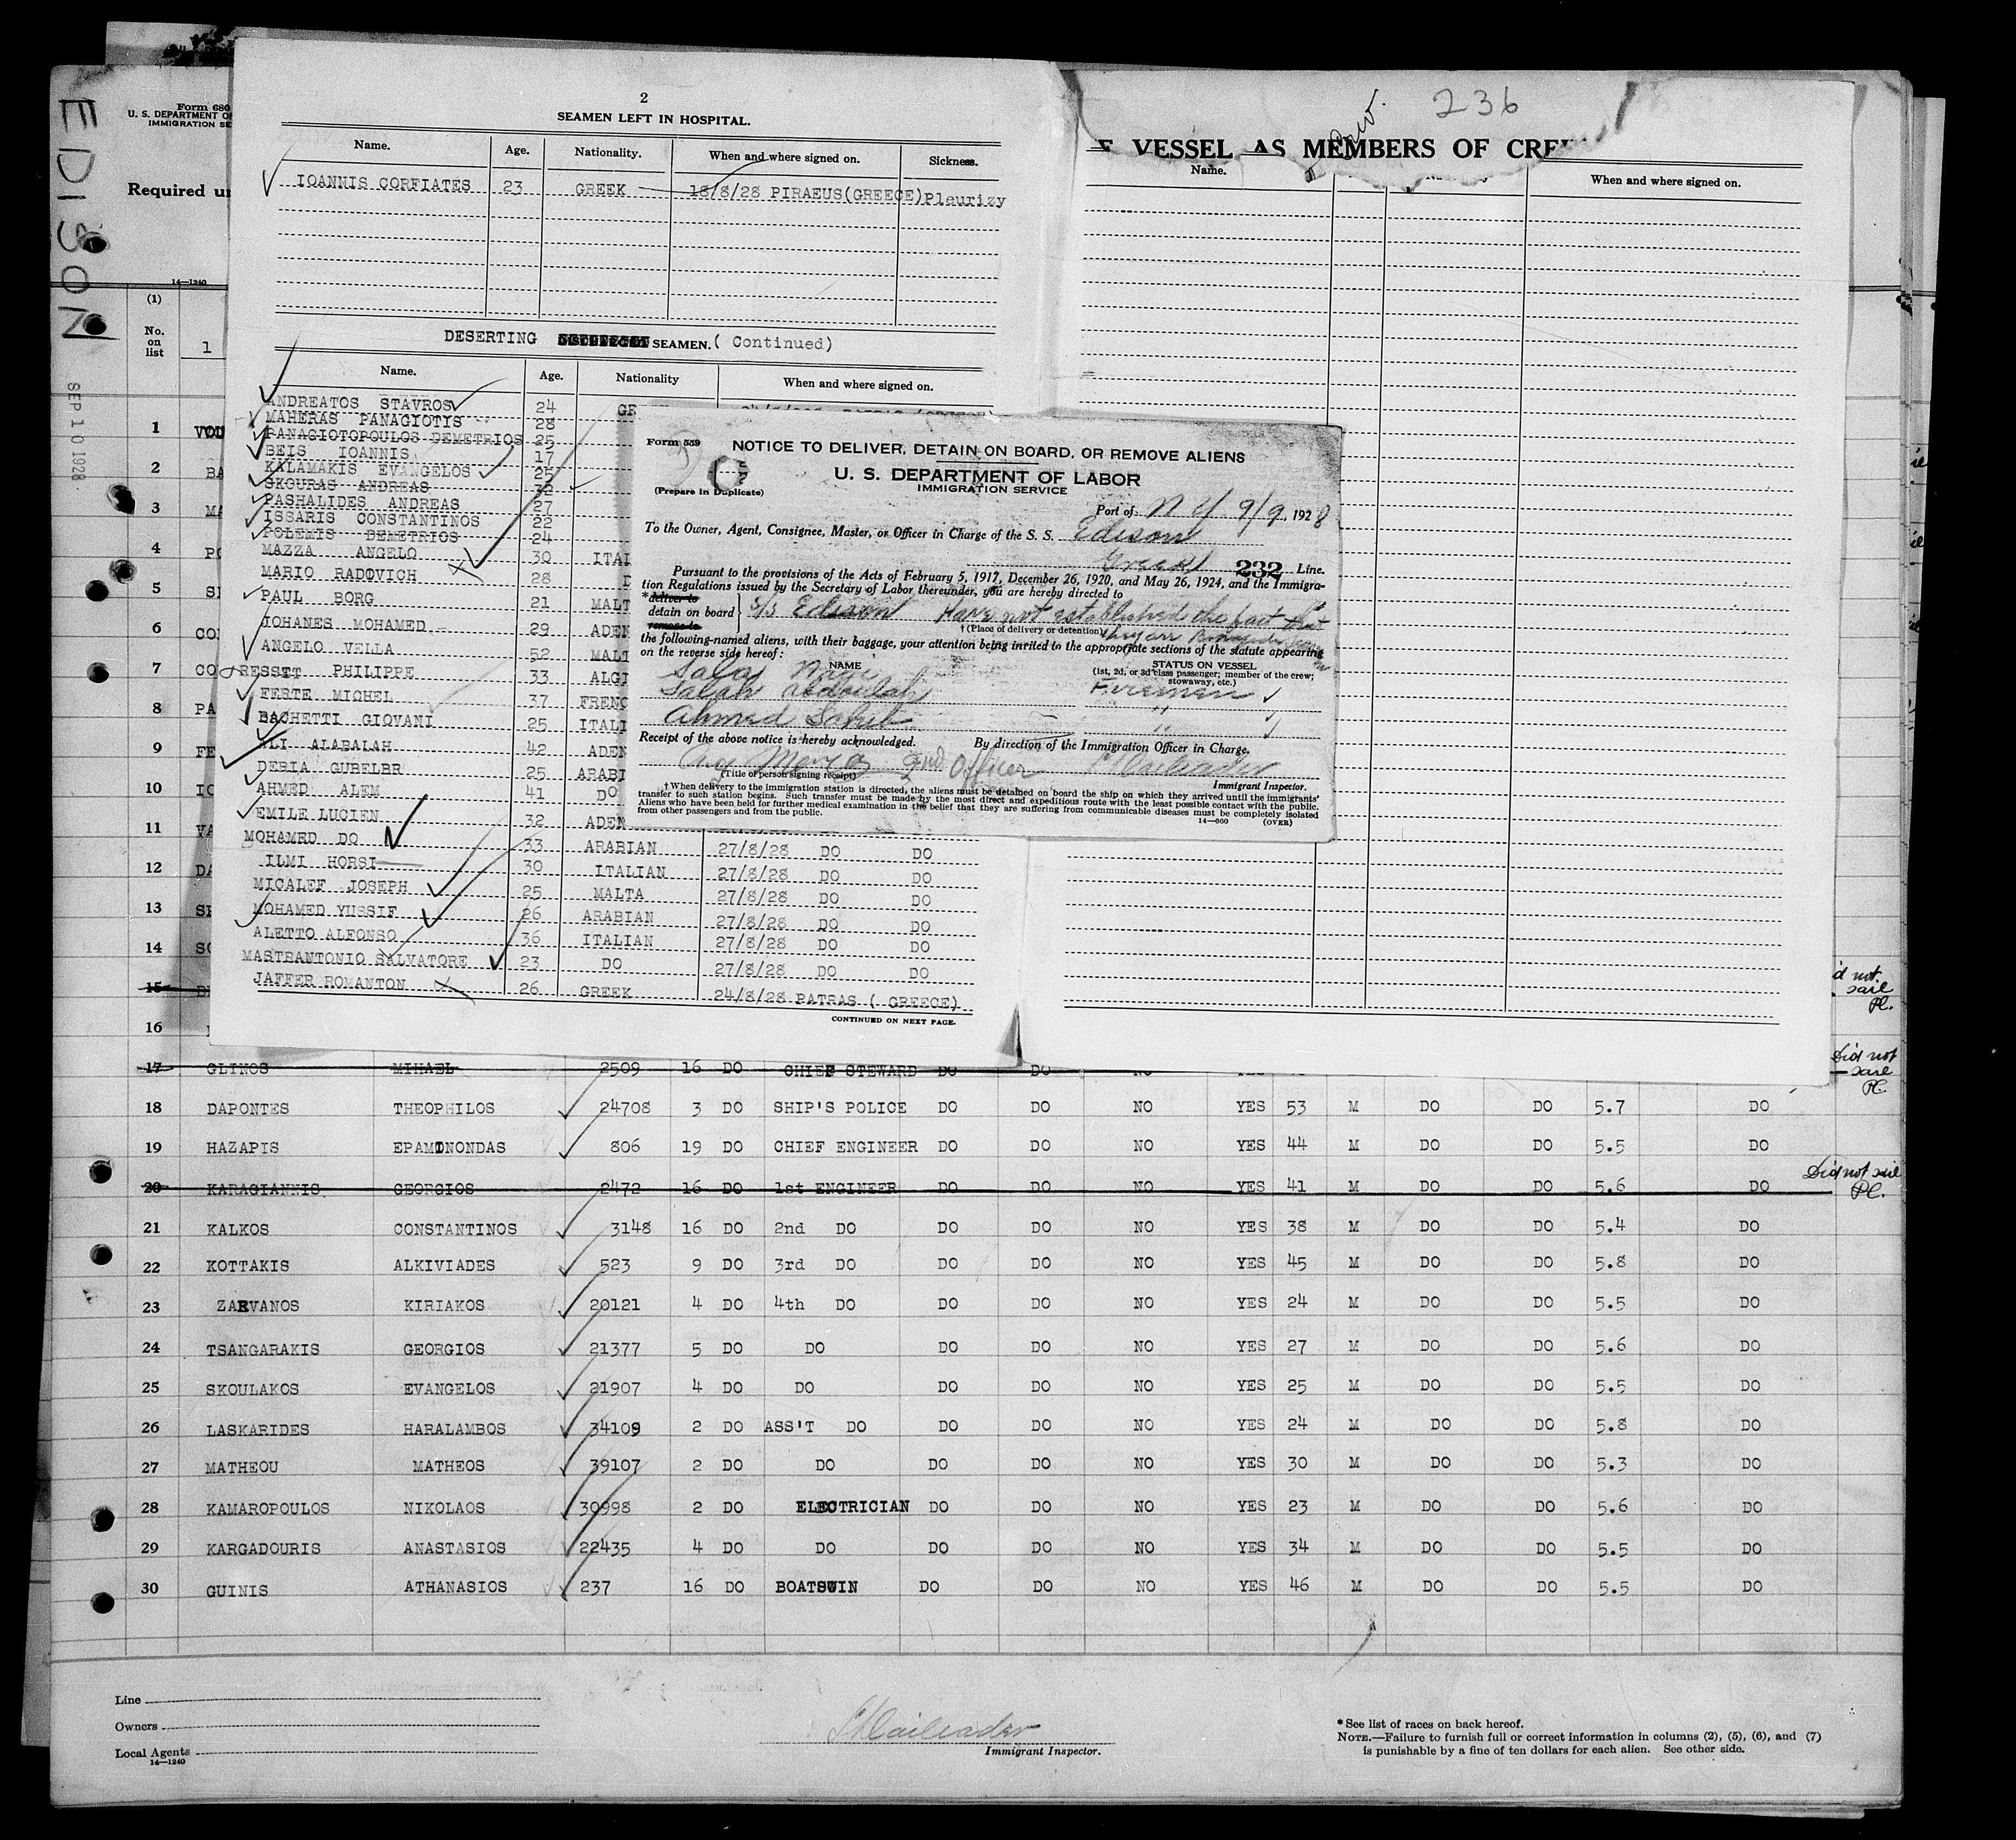 236
EDISON
SEP 10 1928
Form 680
U. S. DEPARTMENT OF
IMMIGRATION SE
Required un
14—1240
(1)
No. on list
1
2
SEAMEN LEFT IN HOSPITAL.
Name. Age. Nationality. When and where signed on. Sickness.
IOANNIS CORFIATES 23 GREEK 18/8/28 PIRAEUS(GREECE) Pleurizy
DESERTING SEAMEN. ( Continued)
Name. Age. Nationality When and where signed on.
ANDREATOS STAVROS 24 GR
MAHERAS PANAGIOTIS 28
PANAGIOTOPOULOS DEMETRIOS 25
BEIS IOANNIS 17
KALAMAKIS EVANGELOS 25
SKOURAS ANDREAS 32
PASHALIDES ANDREAS 27
ISSARIS CONSTANTINOS 22
POLEMIS DEMETRIOS 24
MAZZA ANGELO 30 ITAL
MARIO RADOVICH 28 D
PAUL BORG 21 MALT
JOHANES MOHAMED 29 ADEN
ANGELO VELLA 52 MALT
PHILIPPE 33 ALGI
FERTE MICHEL 37 FRENC
BACHETTI GIOVANI 25 ITALI
ALI ALABALAH 42 ADEN
DEBIA GUBELBR 25 ARABI
AHMED ALEM 41 DO
EMILE LUCIEN 32 ADEN
MOHAMED DO 33 ARABIAN 27/8/28 DO DO
ILMI HORSI 30 ITALIAN 27/8/28 DO DO
MICALEF JOSEPH 25 MALTA 27/8/28 DO DO
MOHAMED YUSSIF 26 ARABIAN 27/8/28 DO DO
ALETTO ALFONSO 36 ITALIAN 27/8/28 DO DO
MASTRANTONIO SALVATORE 23 DO 27/8/28 DO DO
JAFFER ROMANTON 26 GREEK 24/8/28 PATRAS ( GREECE)
CONTINUED ON NEXT PAGE.
VESSEL AS MEMBERS OF CRE
Name. When and where signed on.
Form 559
NOTICE TO DELIVER, DETAIN ON BOARD, OR REMOVE ALIENS
U. S. DEPARTMENT OF LABOR
IMMIGRATION SERVICE
(Prepare in Duplicate)
Port of N Y 9/9, 1928
To the Owner, Agent, Consignee, Master, or Officer in Charge of the S. S. Edison
Greek 232 Line.
Pursuant to the provisions of the Acts of February 5, 1917, December 26, 1920, and May 26, 1924, and the Immigra-
tion Regulations issued by the Secretary of Labor thereunder, you are hereby directed to
*deliver to
detain on board } S/S Edison Have not established the fact that
remove to
†(Place of delivery or detention) they are Bonafide
the following-named aliens, with their baggage, your attention being invited to the appropriate sections of the statute appearing
on the reverse side hereof:
NAME STATUS ON VESSEL
(1st, 2d, or 3d class passenger; member of the crew; stowaway, etc.)
Sala Nagi
Salah Abdoulah Firemen
Ahmed Sahib "
Receipt of the above notice is hereby acknowledged. By direction of the Immigration Officer in Charge.
2nd Officer
(Title of person signing receipt) Immigrant Inspector.
†When delivery to the immigration station is directed, the aliens must be detained on board the ship on which they arrived until the immigrants'
transfer to such station begins. Such transfer must be made by the most direct and expeditious route with the least possible contact with the public.
Aliens who have been held for further medical examination in the belief that they are suffering from communicable diseases must be completely isolated
from other passengers and from the public.
14—660 (OVER)
1 VOU
2 BA
3 MA
4 PO
5 SI
6 CO
7 CO
8 PA
9 FE
10 IO
11 VA
12 DA
13 SI
14 SC
15 did not sail Pl.
16
17 GLINOS MIHAEL 2509 16 DO CHIEF STEWARD DO DO NO Did not sail Pl.
18 DAPONTES THEOPHILOS 24708 3 DO SHIP'S POLICE DO DO NO YES 53 M DO DO 5.7 DO
19 HAZAPIS EPAMINONDAS 806 19 DO CHIEF ENGINEER DO DO NO YES 44 M DO DO 5.5 DO
20 KARAGIANNIS GEORGIOS 2472 16 DO 1st ENGINEER DO DO NO YES 41 M DO DO 5.6 DO Did not sail Pl.
21 KALKOS CONSTANTINOS 3148 16 DO 2nd DO DO DO NO YES 38 M DO DO 5.4 DO
22 KOTTAKIS ALKIVIADES 523 9 DO 3rd DO DO DO NO YES 45 M DO DO 5.8 DO
23 ZARVANOS KIRIAKOS 20121 4 DO 4th DO DO DO NO YES 24 M DO DO 5.5 DO
24 TSANGARAKIS GEORGIOS 21377 5 DO DO DO DO NO YES 27 M DO DO 5.6 DO
25 SKOULAKOS EVANGELOS 21907 4 DO DO DO DO NO YES 25 M DO DO 5.5 DO
26 LASKARIDES HARALAMBOS 34109 2 DO ASS'T DO DO DO NO YES 24 M DO DO 5.8 DO
27 MATHEOU MATHEOS 39107 2 DO DO DO DO NO YES 30 M DO DO 5.3 DO
28 KAMAROPOULOS NIKOLAOS 30998 2 DO ELECTRICIAN DO DO NO YES 23 M DO DO 5.6 DO
29 KARGADOURIS ANASTASIOS 22435 4 DO DO DO DO NO YES 34 M DO DO 5.5 DO
30 GUINIS ATHANASIOS 237 16 DO BOATSWIN DO DO NO YES 46 M DO DO 5.5 DO
Line
Owners
Local Agents
14—1240
Immigrant Inspector.
* See list of races on back hereof.
NOTE.—Failure to furnish full or correct information in columns (2), (5), (6), and (7)
is punishable by a fine of ten dollars for each alien. See other side.